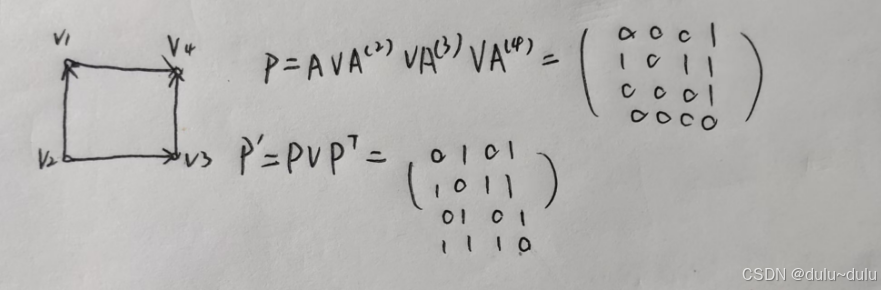 V1
V4
V2
V3
P=A∨A⁽²⁾∨A⁽³⁾∨A⁽⁴⁾=
0 0 0 1
1 0 1 1
0 0 0 1
0 0 0 0
P'=P∨Pᵀ=
0 1 0 1
1 0 1 1
0 1 0 1
1 1 1 0
CSDN @dulu~dulu